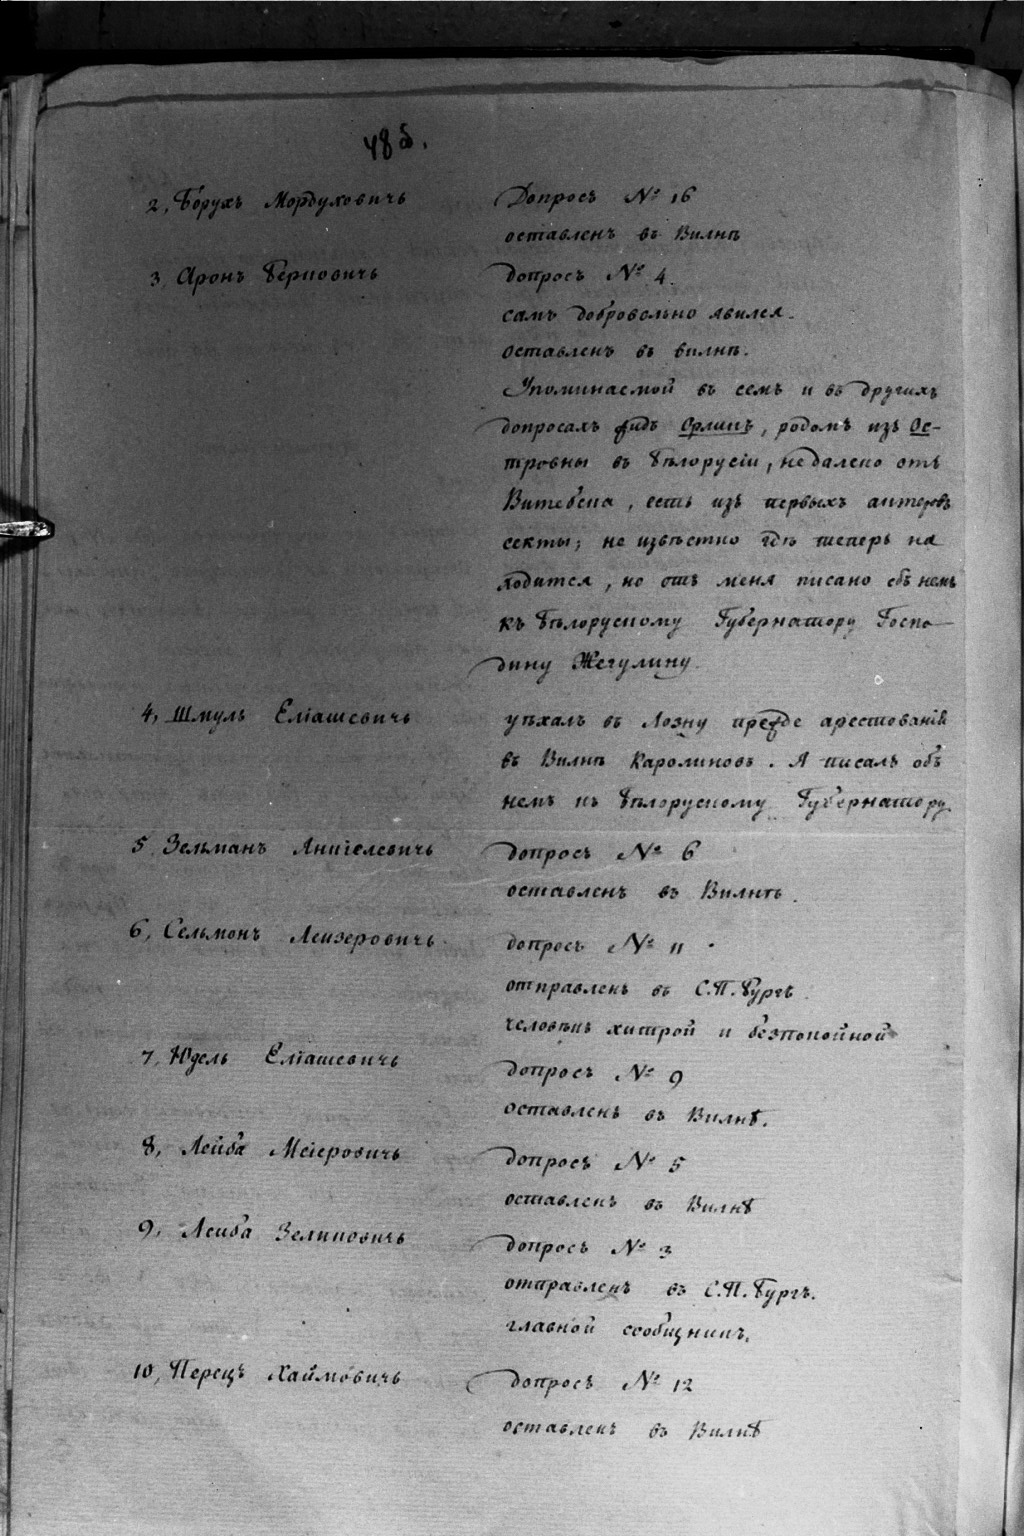 48б.
2, Борухъ Мордуховичъ Допросъ № 16
оставленъ въ Вилнѣ
3, Аронъ Берковичь допросъ № 4.
самъ добровольно явился.
оставленъ въ вилнѣ.
Упоминаемой въ семъ и въ другихъ
допросахъ жидъ Орликъ, родомъ изъ Ос-
тровны въ Бѣлорусіи, недалеко отъ
Витебска, есть изъ первыхъ актеровъ
секты; не извѣстно гдѣ теперь на
ходится, но отъ меня писано объ немъ
къ Бѣлорускому Губернатору Госпо-
дину Жегулину.
4, Шмуль Еліашевичь уѣхалъ въ Лозну прежде арестованія
въ Вилнѣ Каролиновъ. Я писалъ объ
немъ къ Бѣлорускому Губернатору
5, Зельманъ Аншелевичь допросъ № 6
оставленъ въ Вилнѣ.
6, Сельмонъ Леизеровичь допросъ № 11
отправленъ въ С.П.Бургъ
человѣкъ хитрой и безпокойной
7, Юдель Еліашевичь допросъ № 9
оставленъ въ Вилнѣ.
8, Лейба Меіеровичь допросъ № 5
оставленъ въ Вилнѣ
9, Леиба Зеликовичь допросъ № 3
отправленъ въ С.П.Бургъ.
главной сообщникъ.
10, Перецъ Хаймовичь допросъ № 12
оставленъ въ Вилнѣ